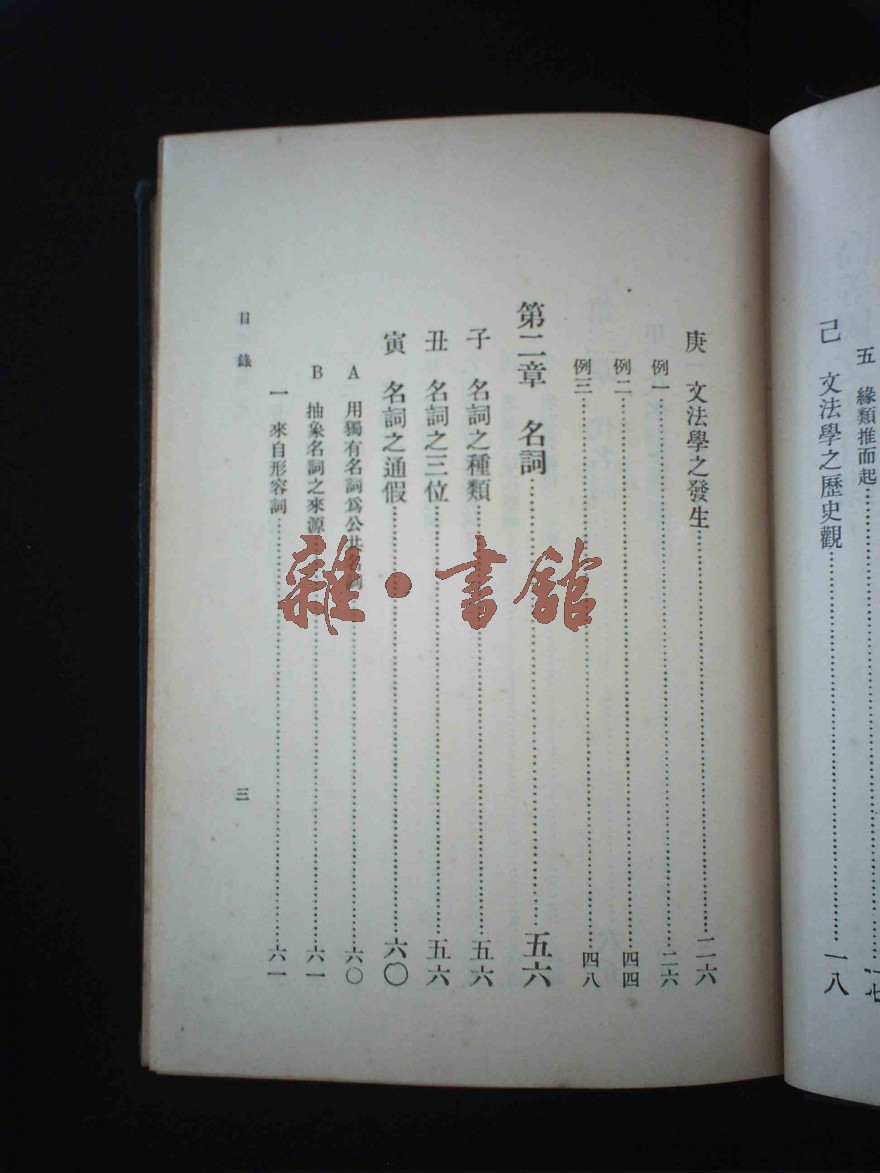 五　緣類推而起……一七
己　文法學之歷史觀……一八
庚　文法學之發生……二六
例一……二六
例二……四四
例三……四八
第二章　名詞……五六
子　名詞之種類……五六
丑　名詞之三位……五六
寅　名詞之通假……六〇
A　用獨有名詞爲公共名詞……六〇
B　抽象名詞之來源……六一
一　來自形容詞……六一
目錄
三
雜·書館